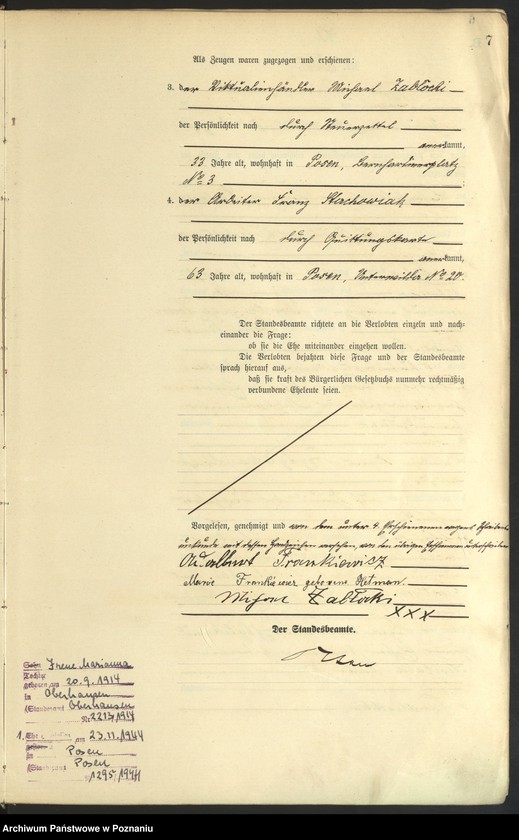 7
Als Zeugen waren zugezogen und erschienen:
3. der Viktualienhändler Michael Zabłocki
der Persönlichkeit nach durch Steuerzettel
anerkannt,
33 Jahre alt, wohnhaft in Posen, Bernhardinerplatz
No 3 ;
4. der Arbeiter Franz Stachowiak
der Persönlichkeit nach durch Quittungskarte
anerkannt,
63 Jahre alt, wohnhaft in Posen, Unterwilda No 20.
Der Standesbeamte richtete an die Verlobten einzeln und nach-
einander die Frage:
ob sie die Ehe miteinander eingehen wollen.
Die Verlobten bejahten diese Frage und der Standesbeamte
sprach hierauf aus,
daß sie kraft des Bürgerlichen Gesetzbuchs nunmehr rechtmäßig
verbundene Eheleute seien.
Vorgelesen, genehmigt und von dem unter 4 Erschienenen wegen
mit dessen Handzeichen versehen, von den übrigen Erschienenen unterschrieben
Adalbert Frankiewicz
Marie Frankiewicz geborene Hetman.
Zabłocki
XXX
Der Standesbeamte.
Irene Marianna
Tochter
geboren am 20.9.1914
in Oberhausen
(Standesamt Oberhausen
Nr. 2213/1914
1. Ehe am 23.11.1944
in Posen
Posen
1295/1944)
Archiwum Państwowe w Poznaniu